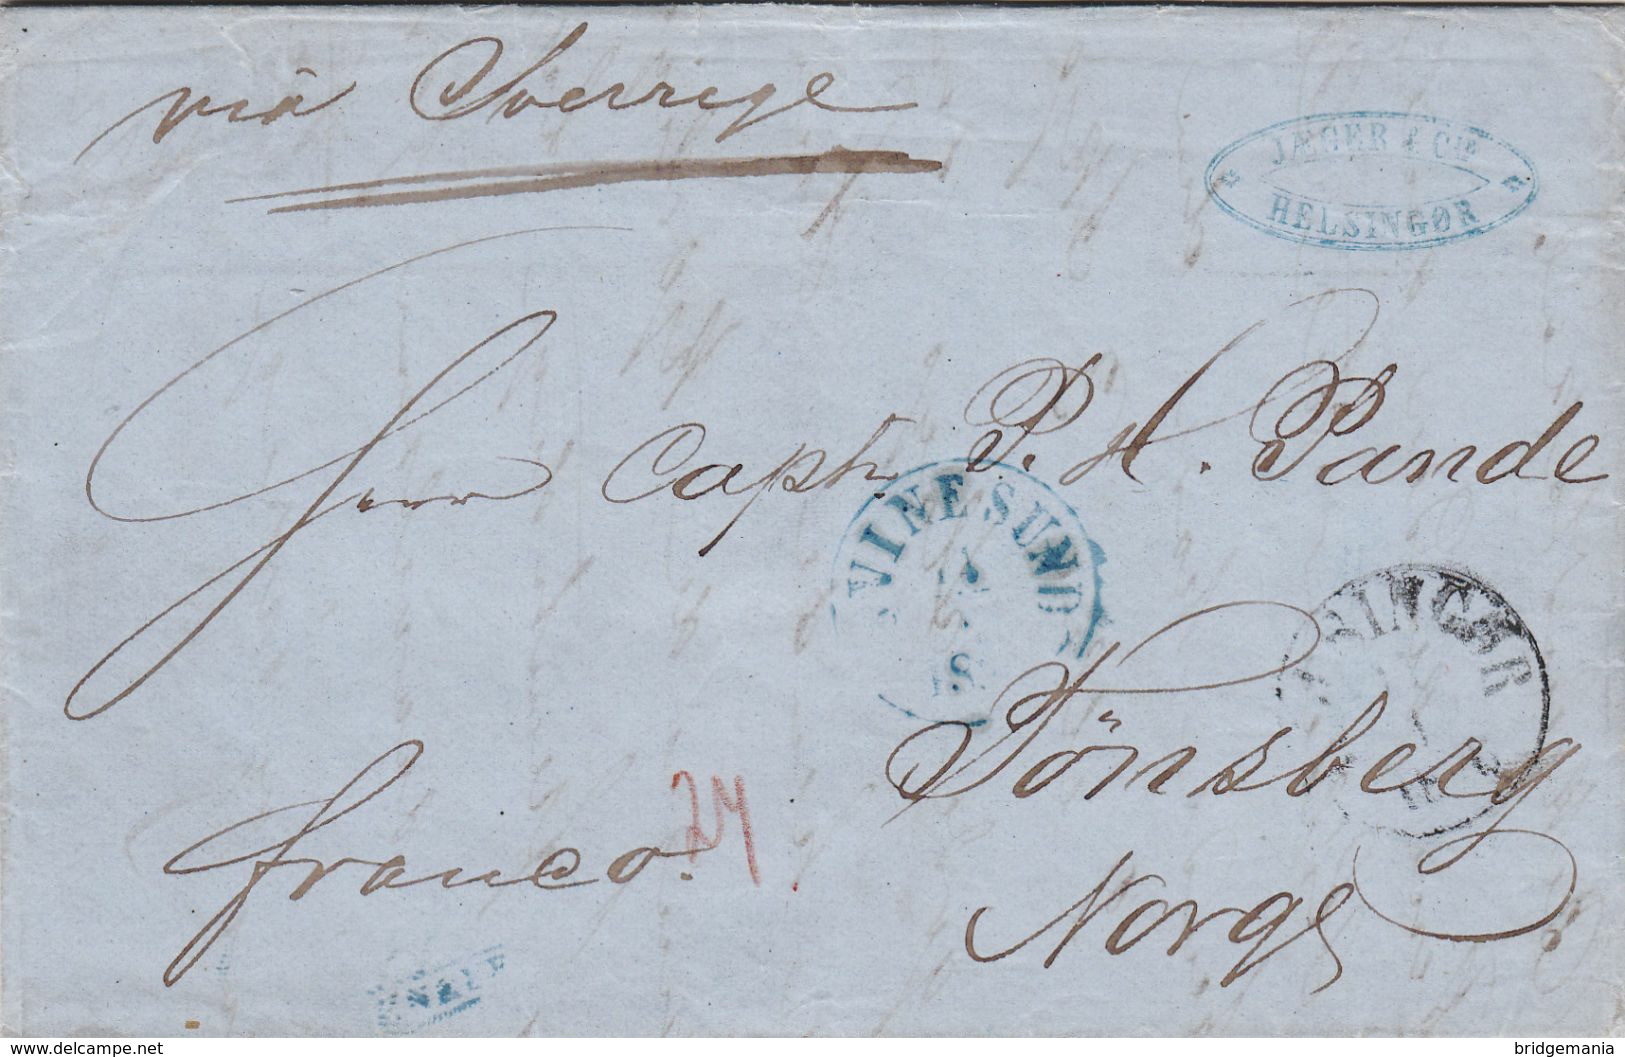 via Sverrige
JÆGER & CIE
HELSINGØR
Herr Captn P. H. Pande
SVINESUND
Tönsberg
Norge
franco. 24
delcampe.net
bridgemania